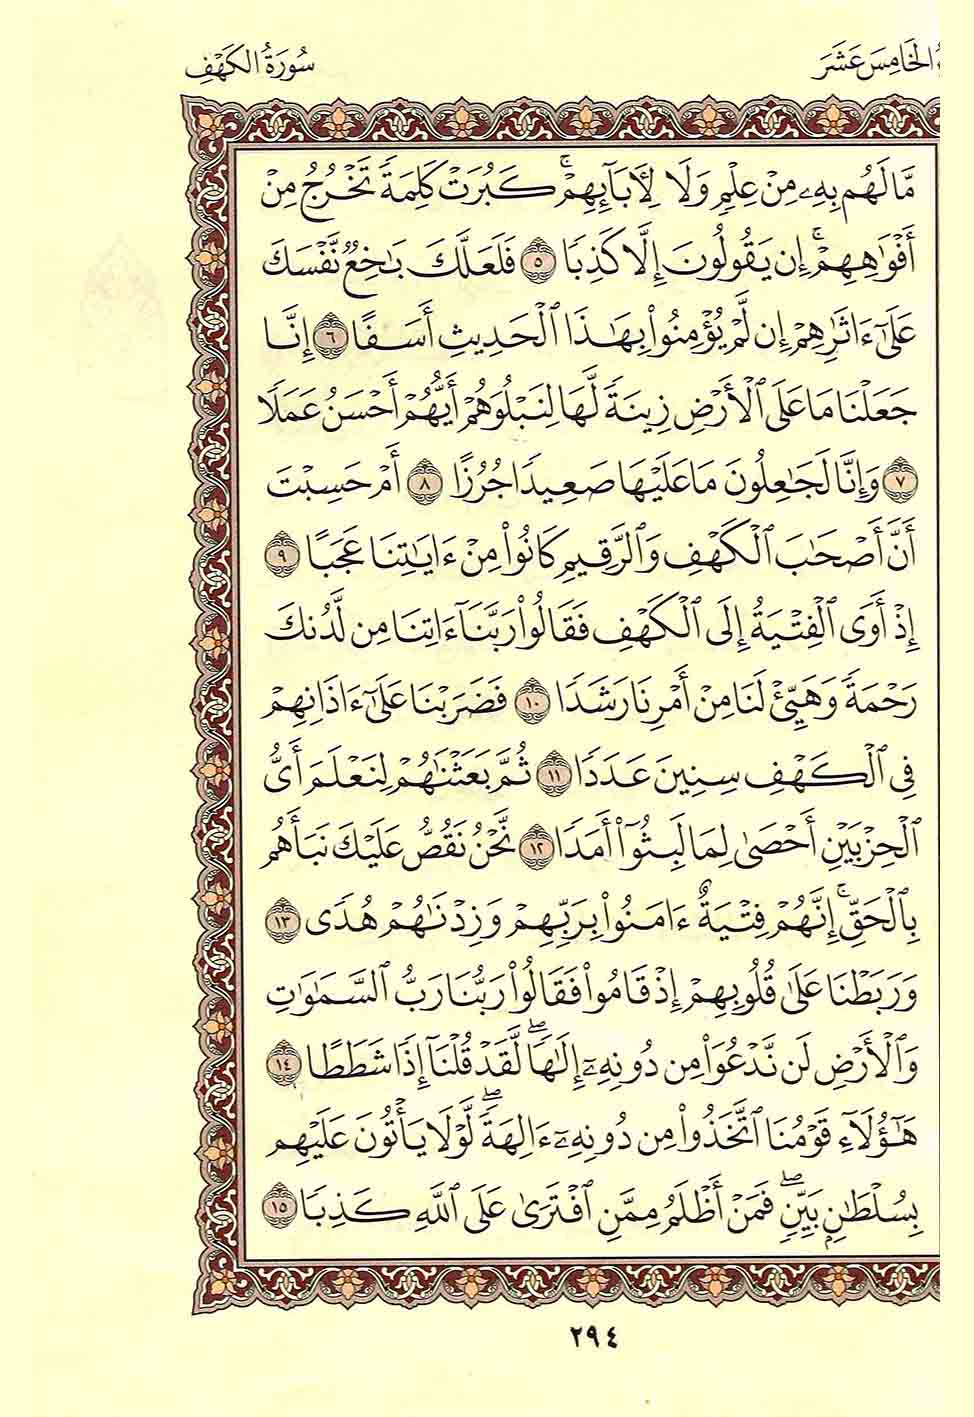 الخَامِسَ عَشَرَ
سُورَةُ الكَهْفِ
مَّا لَهُم بِهِۦ مِنْ عِلْمٍ وَلَا لِأَبَآئِهِمْۚ كَبُرَتْ كَلِمَةً تَخْرُجُ مِنْ
أَفْوَٰهِهِمْۚ إِن يَقُولُونَ إِلَّا كَذِبًا ٥ فَلَعَلَّكَ بَٰخِعٌ نَّفْسَكَ
عَلَىٰٓ ءَاثَٰرِهِمْ إِن لَّمْ يُؤْمِنُوا۟ بِهَٰذَا ٱلْحَدِيثِ أَسَفًا ٦ إِنَّا
جَعَلْنَا مَا عَلَى ٱلْأَرْضِ زِينَةً لَّهَا لِنَبْلُوَهُمْ أَيُّهُمْ أَحْسَنُ عَمَلًا
٧ وَإِنَّا لَجَٰعِلُونَ مَا عَلَيْهَا صَعِيدًا جُرُزًا ٨ أَمْ حَسِبْتَ
أَنَّ أَصْحَٰبَ ٱلْكَهْفِ وَٱلرَّقِيمِ كَانُوا۟ مِنْ ءَايَٰتِنَا عَجَبًا ٩
إِذْ أَوَى ٱلْفِتْيَةُ إِلَى ٱلْكَهْفِ فَقَالُوا۟ رَبَّنَآ ءَاتِنَا مِن لَّدُنكَ
رَحْمَةً وَهَيِّئْ لَنَا مِنْ أَمْرِنَا رَشَدًا ١٠ فَضَرَبْنَا عَلَىٰٓ ءَاذَانِهِمْ
فِى ٱلْكَهْفِ سِنِينَ عَدَدًا ١١ ثُمَّ بَعَثْنَٰهُمْ لِنَعْلَمَ أَىُّ
ٱلْحِزْبَيْنِ أَحْصَىٰ لِمَا لَبِثُوٓا۟ أَمَدًا ١٢ نَّحْنُ نَقُصُّ عَلَيْكَ نَبَأَهُم
بِٱلْحَقِّۚ إِنَّهُمْ فِتْيَةٌ ءَامَنُوا۟ بِرَبِّهِمْ وَزِدْنَٰهُمْ هُدًى ١٣
وَرَبَطْنَا عَلَىٰ قُلُوبِهِمْ إِذْ قَامُوا۟ فَقَالُوا۟ رَبُّنَا رَبُّ ٱلسَّمَٰوَٰتِ
وَٱلْأَرْضِ لَن نَّدْعُوَا۟ مِن دُونِهِۦٓ إِلَٰهًاۖ لَّقَدْ قُلْنَآ إِذًا شَطَطًا ١٤
هَٰٓؤُلَآءِ قَوْمُنَا ٱتَّخَذُوا۟ مِن دُونِهِۦٓ ءَالِهَةًۖ لَّوْلَا يَأْتُونَ عَلَيْهِم
بِسُلْطَٰنٍۭ بَيِّنٍۖ فَمَنْ أَظْلَمُ مِمَّنِ ٱفْتَرَىٰ عَلَى ٱللَّهِ كَذِبًا ١٥
٢٩٤